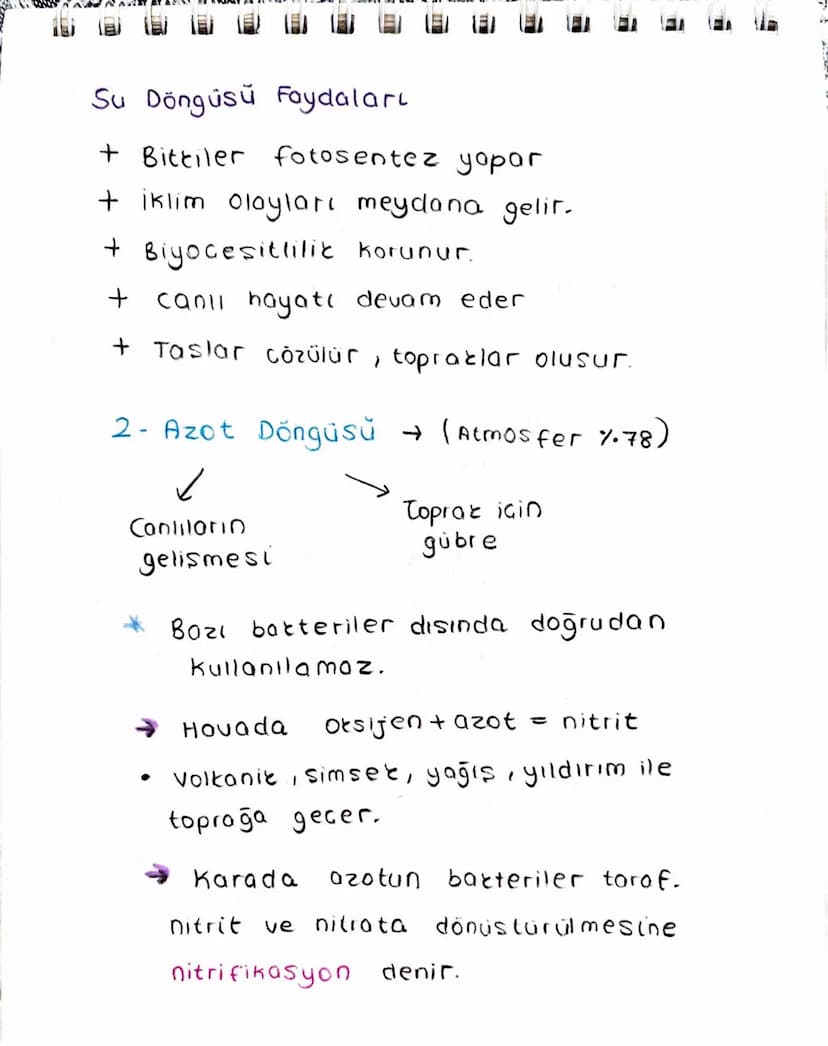 Su Döngüsü Faydaları
+ Bitkiler fotosentez yapar
+ iklim olayları meydana gelir.
+ Biyocesitlilik korunur.
+ canlı hayatı devam eder
+ Taslar cözülür, topraklar olusur.
2- Azot Döngüsü → (Atmosfer %78)
↙ ↘
Canlıların
gelişmesi
Toprak icin
gübre
* Bazı bakteriler dısında doğrudan
kullanılamaz.
→ Havada oksijen + azot = nitrit
• Volkanik, simsek, yağış, yıldırım ile
toprağa gecer.
→ Karada azotun bakteriler taraf.
nitrit ve nitrata dönüstürülmesine
nitrifikasyon denir.